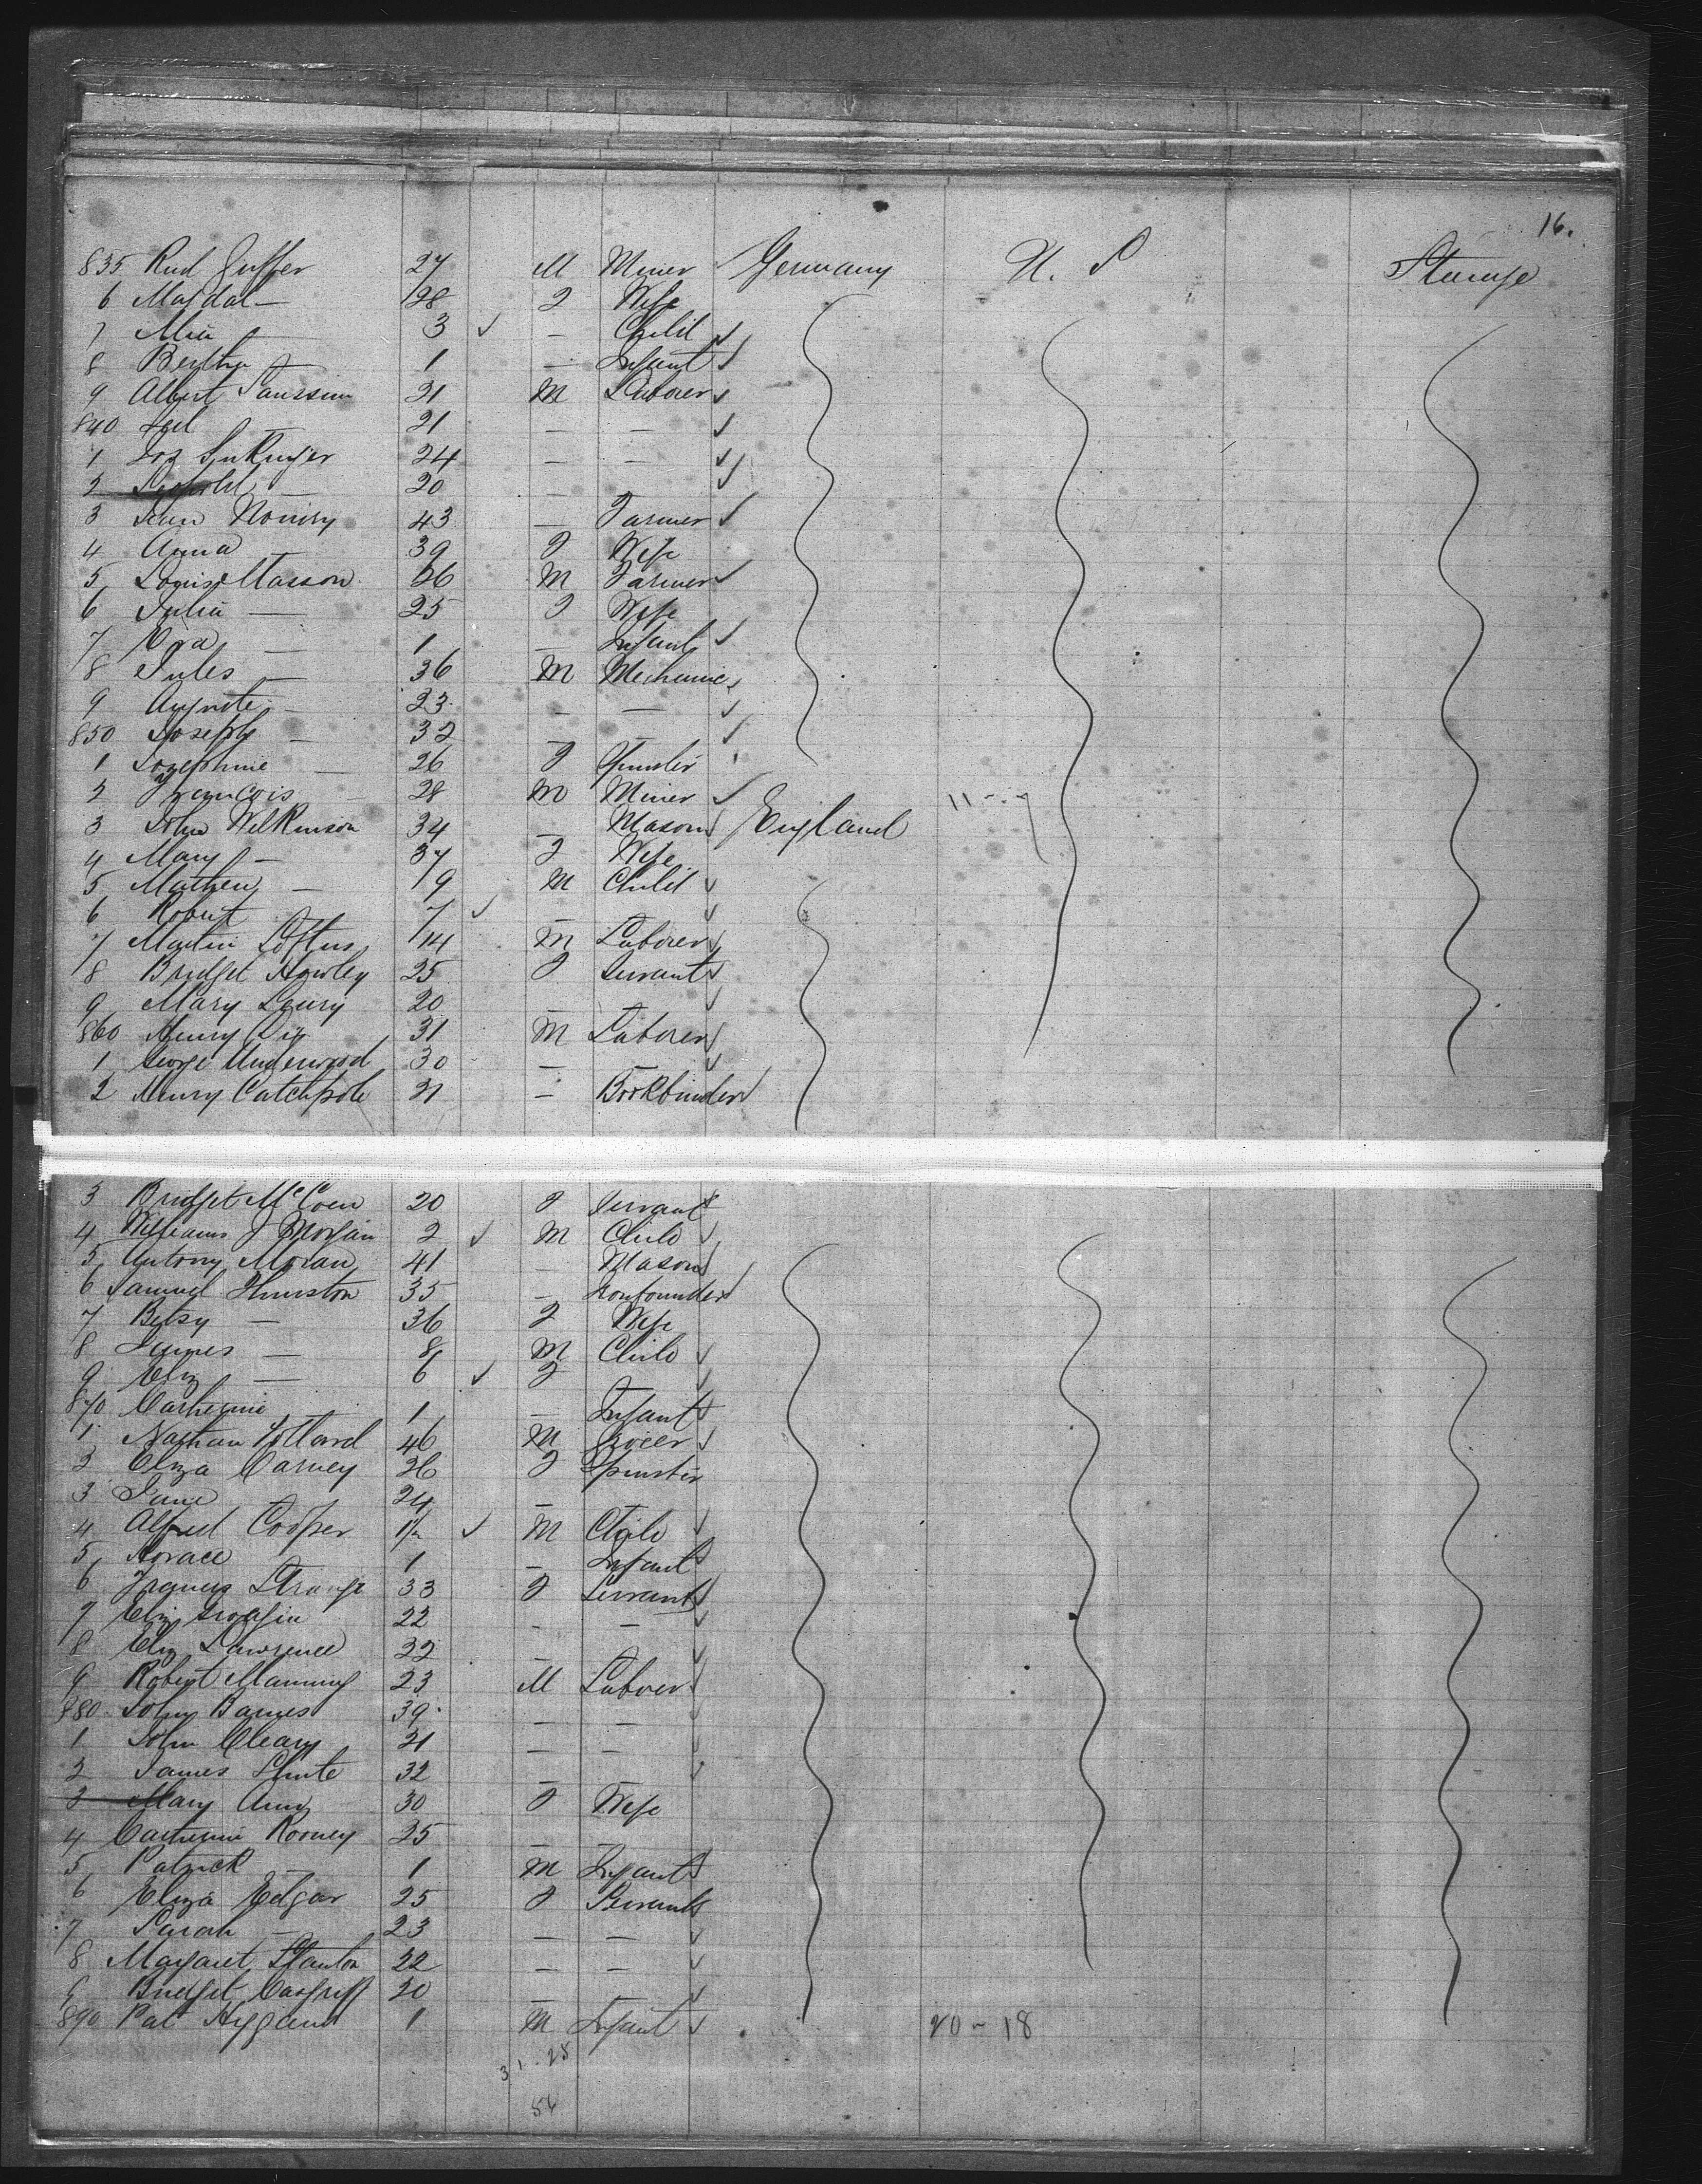 16.
835 Rud Guffer 27 M Miner Germany U. S Steerage
6 Magdal — 28 F Wife
7 Mia — 3 ✓ — Child ✓
8 Bertha — 1 — Infant ✓
9 Albert 21 M Laborer ✓
840 — 21 — — ✓
1 Jos 24 — — ✓
2 Leopold — 20 — — ✓
3 Jean Nourry 43 — Farmer ✓
4 Anna — 39 F Wife
5 Louis Masson 26 M Farmer ✓
6 Julia — 25 F Wife
7 Eva — 1 — Infant ✓
8 Jules — 36 M Mechanic ✓
9 Auguste — 23 — — ✓
850 Joseph — 32 — — ✓
1 Josephine — 26 F Spinster
2 Francois — 28 M Miner ✓
3 John Wilkinson 34 — Mason ✓ England 11 - 7
4 Mary — 37 F Wife
5 Mathew — 9 M Child ✓
6 Robert 7 ✓ — — ✓
7 Martin Loftus 14 M Laborer ✓
8 Bridget Howley 25 F Servant ✓
9 Mary Leury 20 — — ✓
860 Henry Dix 31 M Laborer ✓
1 George Underwood 30 — — ✓
2 Henry Catchpole 21 — Bookbinder ✓
3 Bridget McCoen 20 F Servant ✓
4 William J Morgan 2 ✓ M Child ✓
5 Antony Moran 41 — Mason ✓
6 Samuel Thurston 35 — Ironfounder ✓
7 Betsy — 36 F Wife
8 James — 8 M Child ✓
9 Eliz — 6 ✓ F — ✓
870 Catherine 1 — Infant ✓
1 Nathan Pollard 46 M Grocer ✓
2 Eliza Carney 26 F Spinster
3 Jane — 24 — —
4 Alfred Cooper ✓ M Child ✓
5 Horace 1 — Infant ✓
6 Frances Strange 33 F Servant ✓
7 Eliz Grogin 22 — — ✓
8 Eliz Lawrence 22 — — ✓
9 Robert Manning 23 M Laborer ✓
880 John Barnes 39 — — ✓
1 John Cleary 21 — — ✓
2 James Shute 32 — — ✓
3 Mary Ann 30 F Wife
4 Catherine Rooney 25 — —
5 Patrick — 1 M Infant ✓
6 Eliza Edgar 25 F Servant ✓
7 Sarah — 23 — — ✓
8 Margaret Stanton 22 — — ✓
9 Bridget Cosgriff 20 — — ✓
890 Pat Higgans 1 M Infant ✓ 20 - 18
31 - 25
56